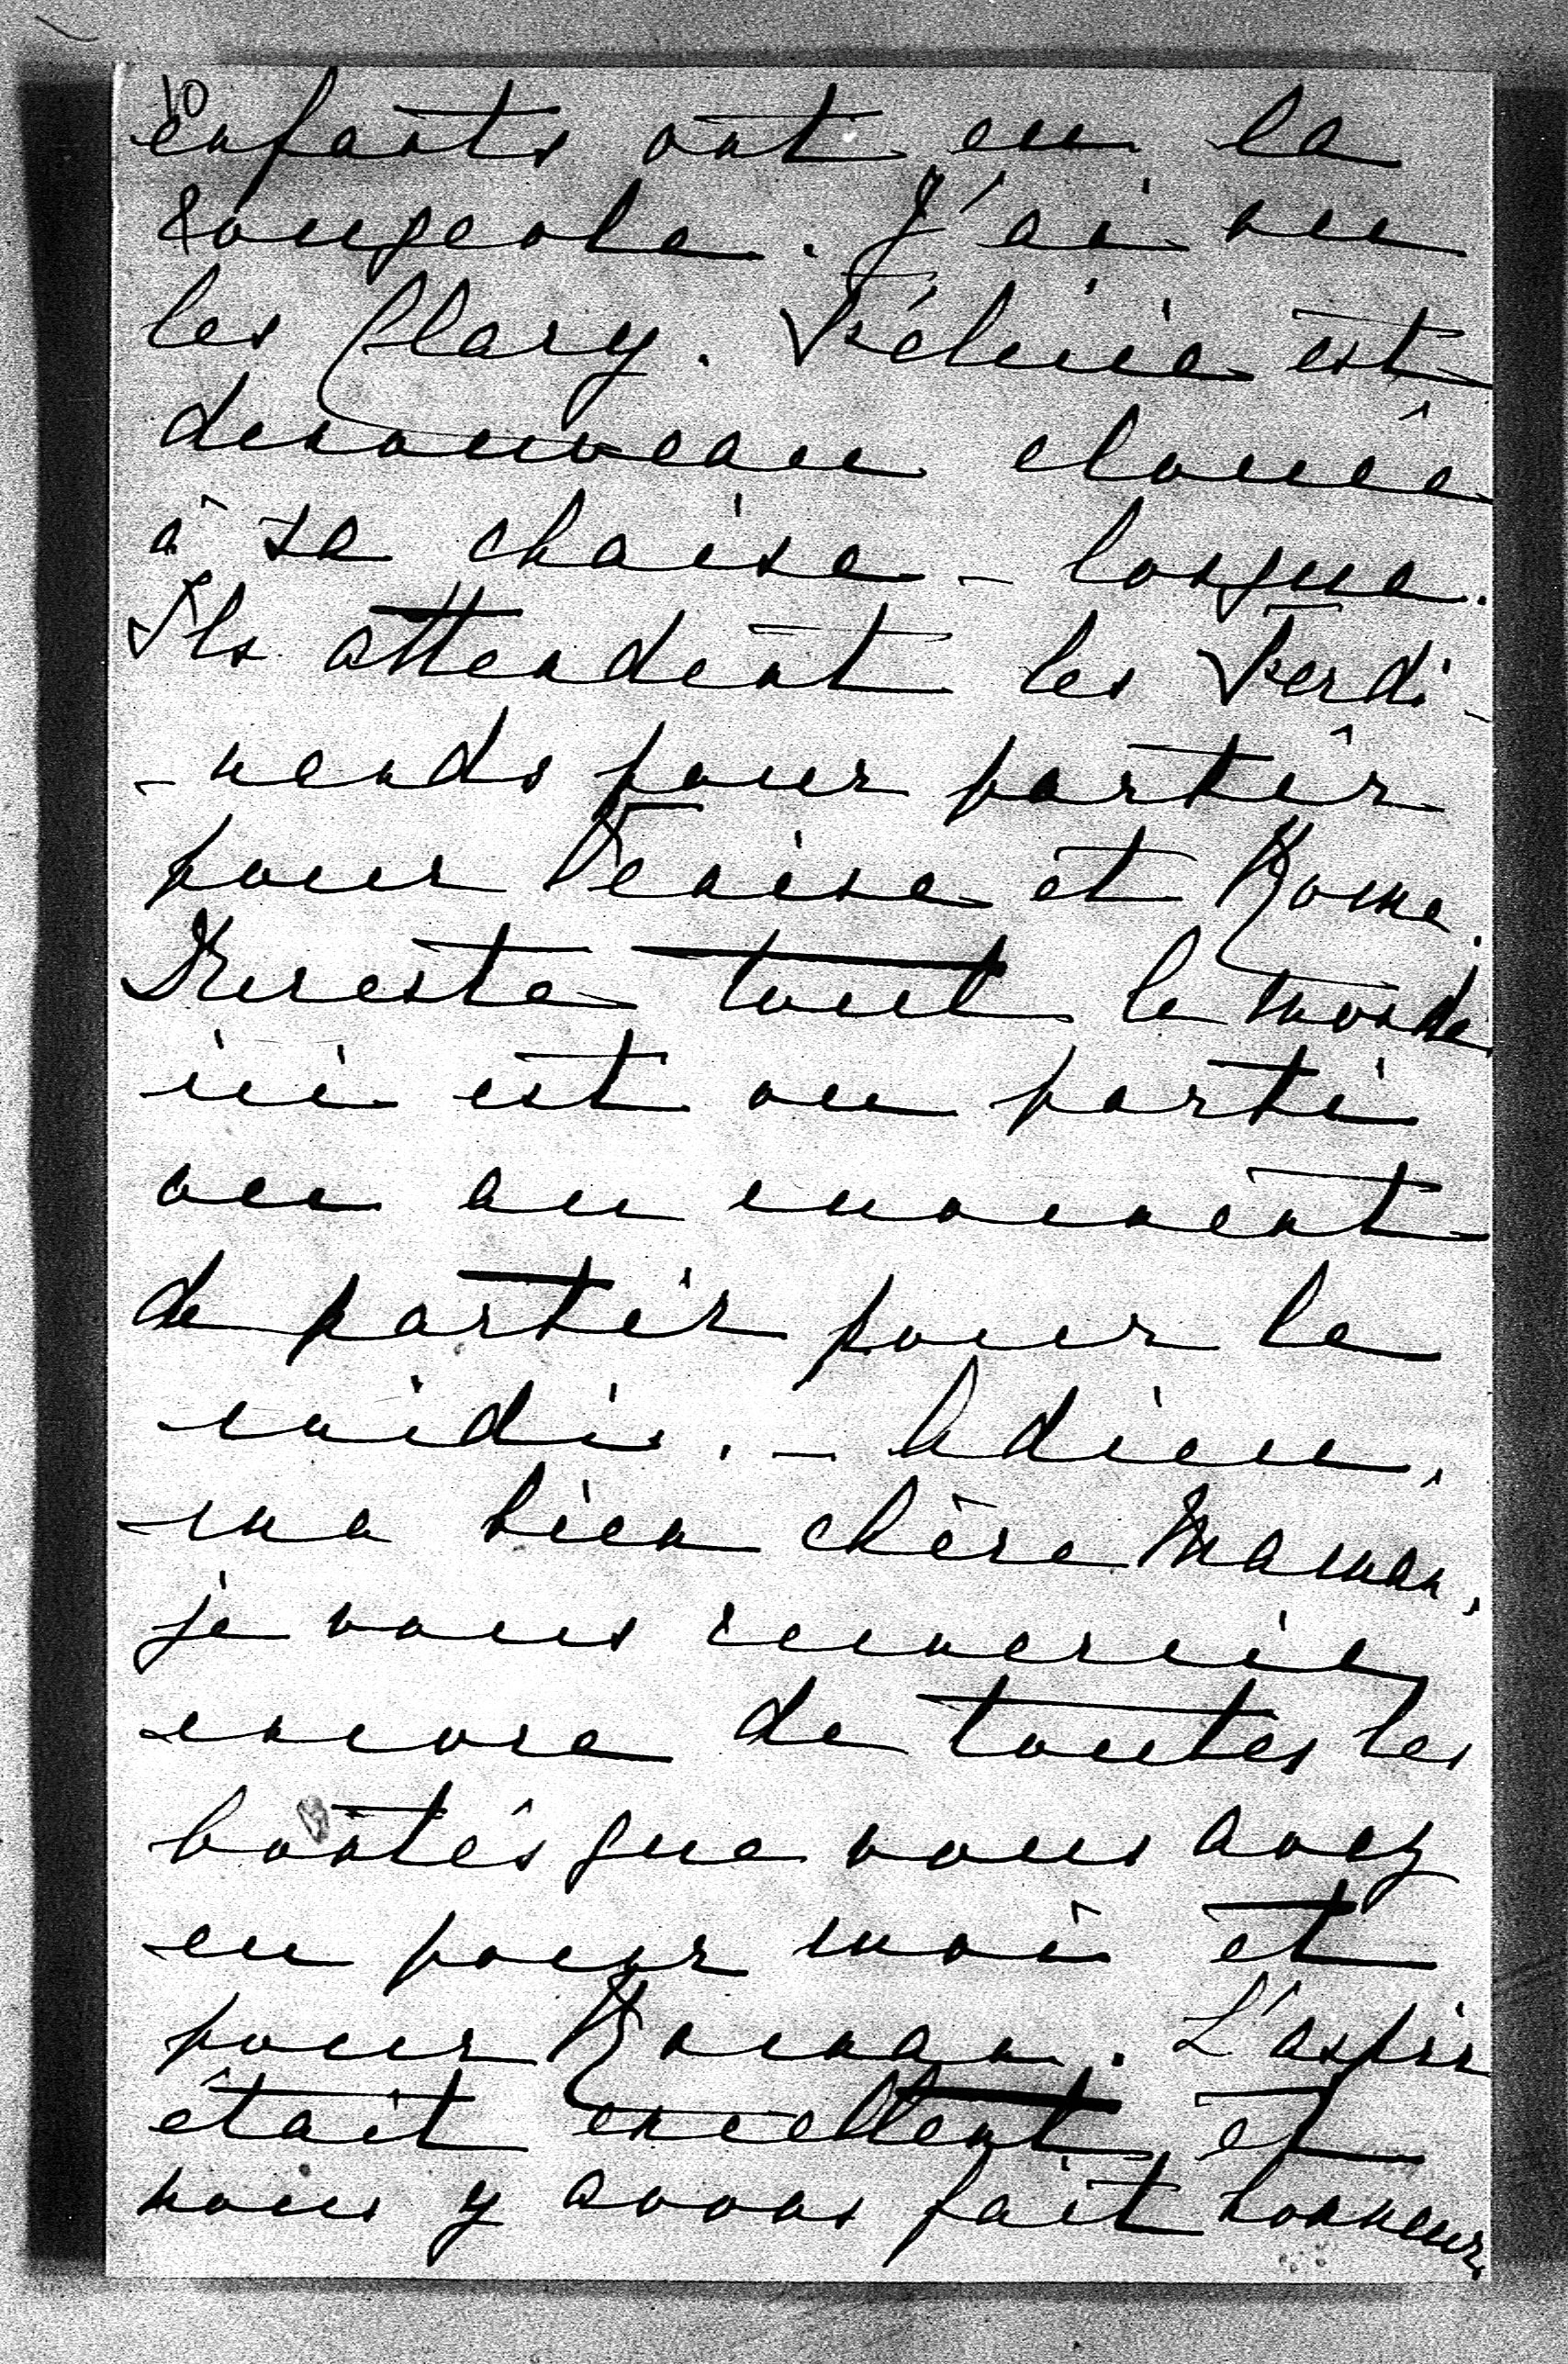 10
enfants ont eu la
rougeole. J'ai vu
les Clary. Félicie est
denouveau clouée
à sa chaise-longue.
Ils attendent les Ferdi-
-nands pour partir
pour Venise et Rome.
Dureste tout le monde
ici est ou parti
ou au moment
de partir pour le
midi. - Adieu,
ma bien chère Maman,
je vous remercie
encore de toutes les
bontés que vous avez
eu pour moi et
pour Roman. L'aspic
était excellent et
nous y avons fait honneur.